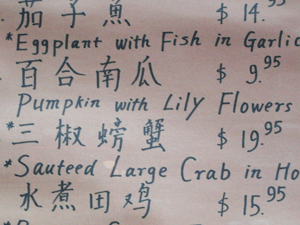 茄子魚 $14.95
*Eggplant with Fish in Garlic
百合南瓜 $9.95
Pumpkin with Lily Flowers
*三椒螃蟹 $19.95
*Sauteed Large Crab in Ho
水煮田鸡 $15.95